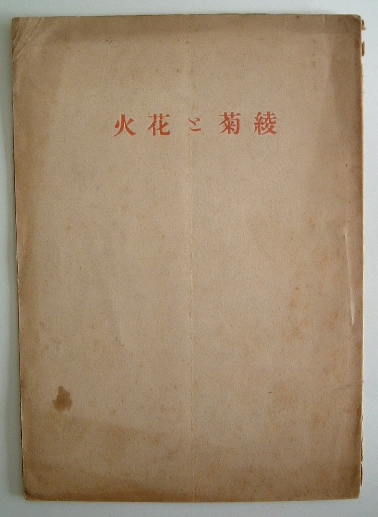 綾菊と花火